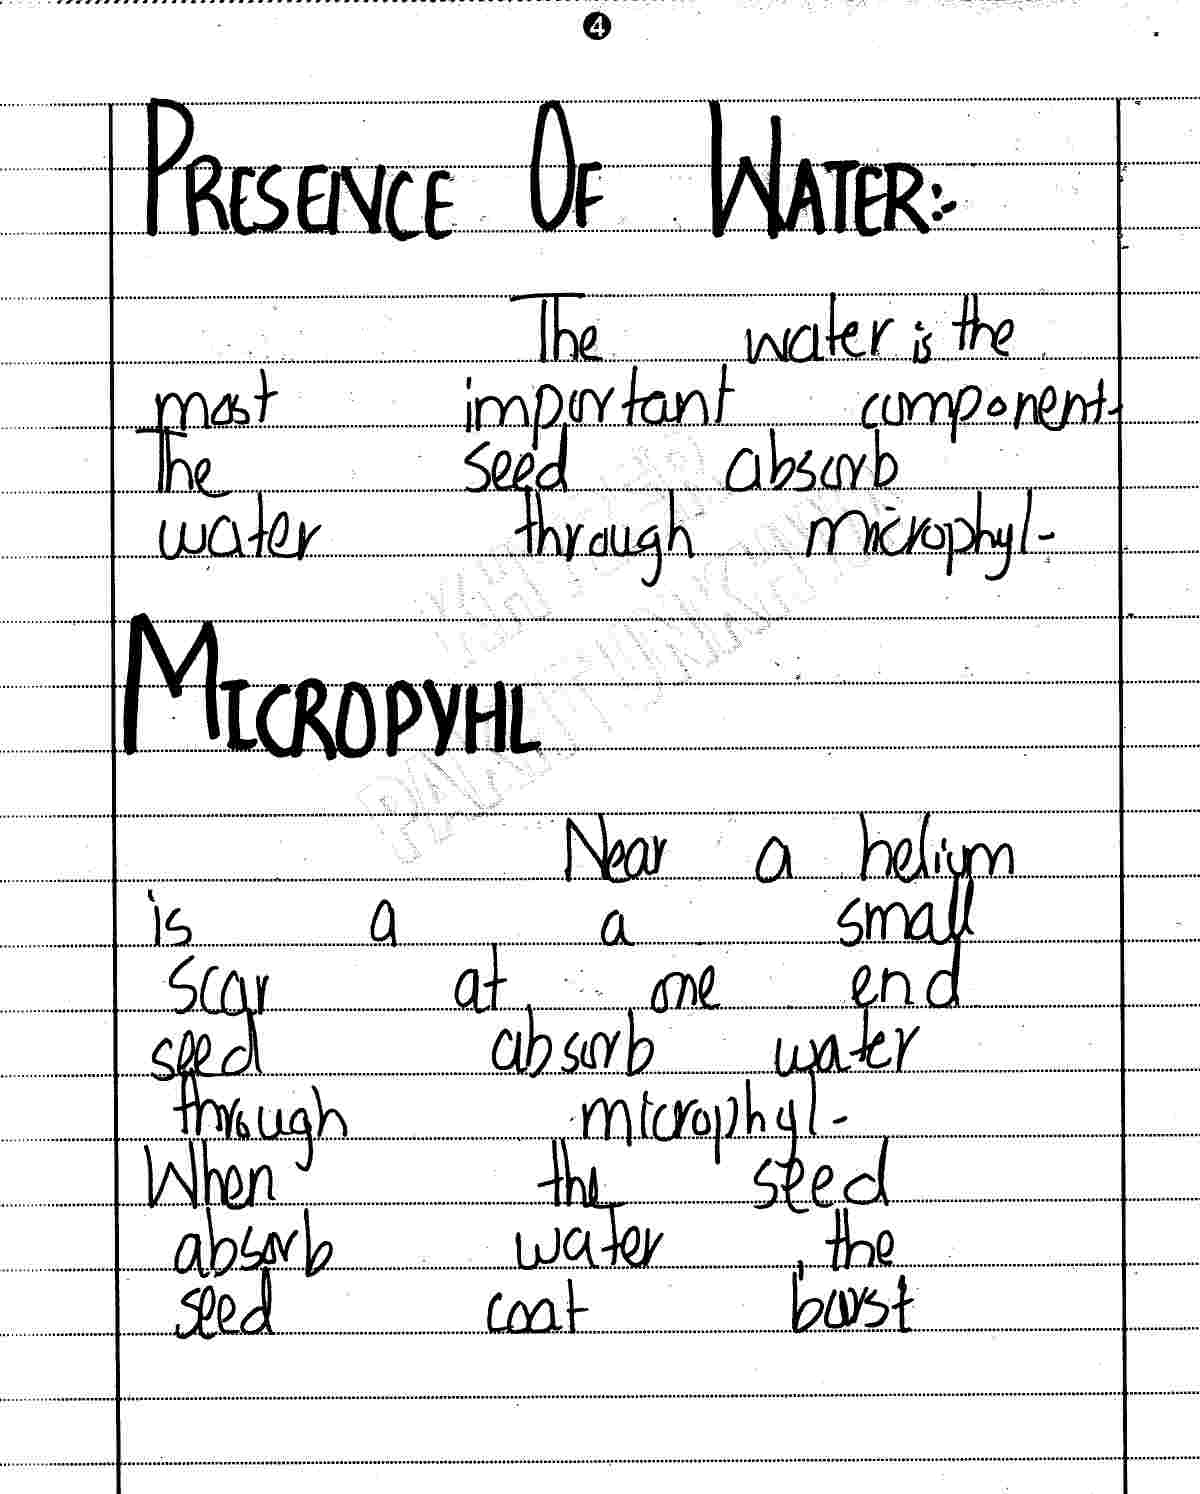 4
PRESENCE OF WATER:-
The water is the
most important component.
The seed absorb
water through microphyl-
MICROPYHL
Near a helium
is a a small
scar at one end
seed absorb water
through microphyl-
When the seed
absorb water, the
seed coat burst